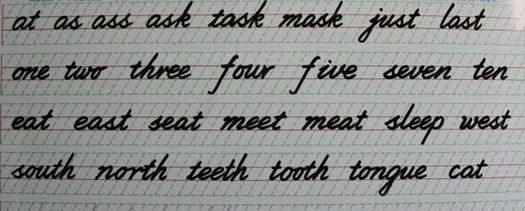 at as ass ask task mask just last
one two three four five seven ten
eat east seat meet meat sleep west
south north teeth tooth tongue cat